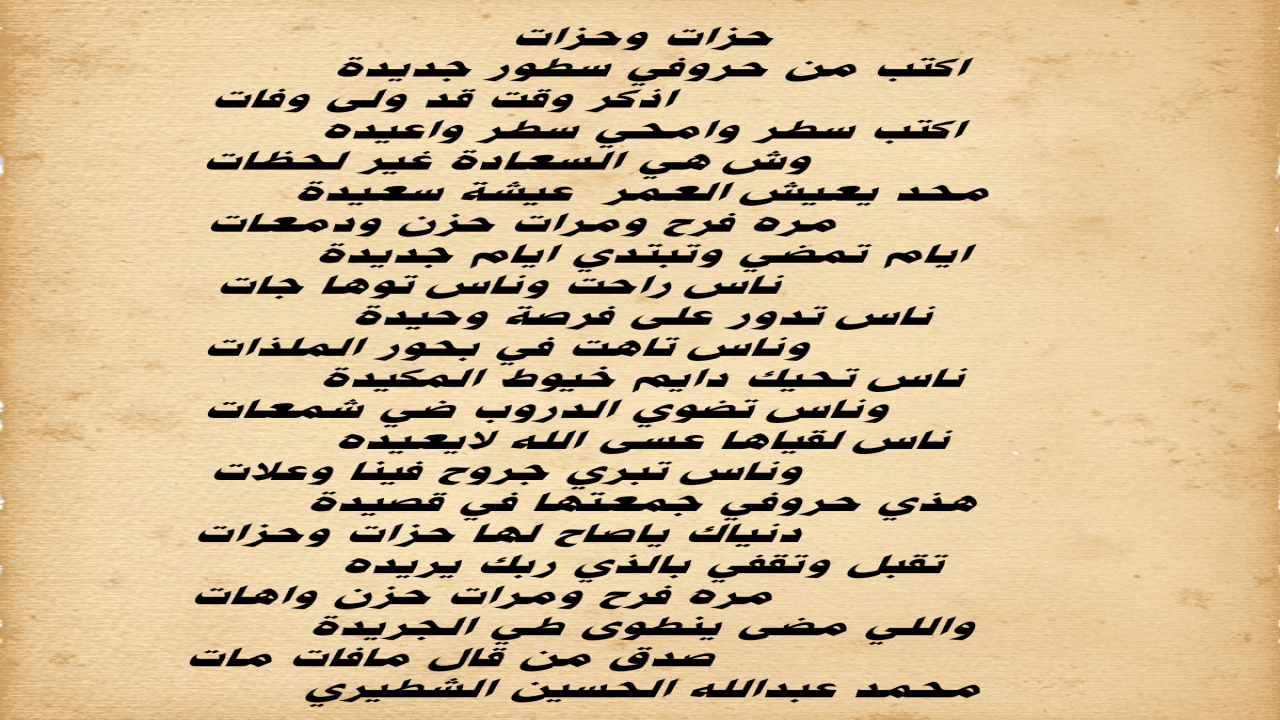 حزات وحزات
اكتب من حروفي سطور جديدة
اذكر وقت قد ولى وفات
اكتب سطر وامحي سطر واعيده
وش هي السعادة غير لحظات
محد يعيش العمر عيشة سعيدة
مره فرح ومرات حزن ودمعات
ايام تمضي وتبتدي ايام جديدة
ناس راحت وناس توها جات
ناس تدور على فرصة وحيدة
وناس تاهت في بحور الملذات
ناس تحيك دايم خيوط المكيدة
وناس تضوي الدروب ضي شمعات
ناس لقياها عسى الله لايعيده
وناس تبري جروح فينا وعلات
هذي حروفي جمعتها في قصيدة
دنياك ياصاح لها حزات وحزات
تقبل وتقفي بالذي ربك يريده
مره فرح ومرات حزن واهات
واللي مضى ينطوى طي الجريدة
صدق من قال مافات مات
محمد عبدالله الحسين الشطيري